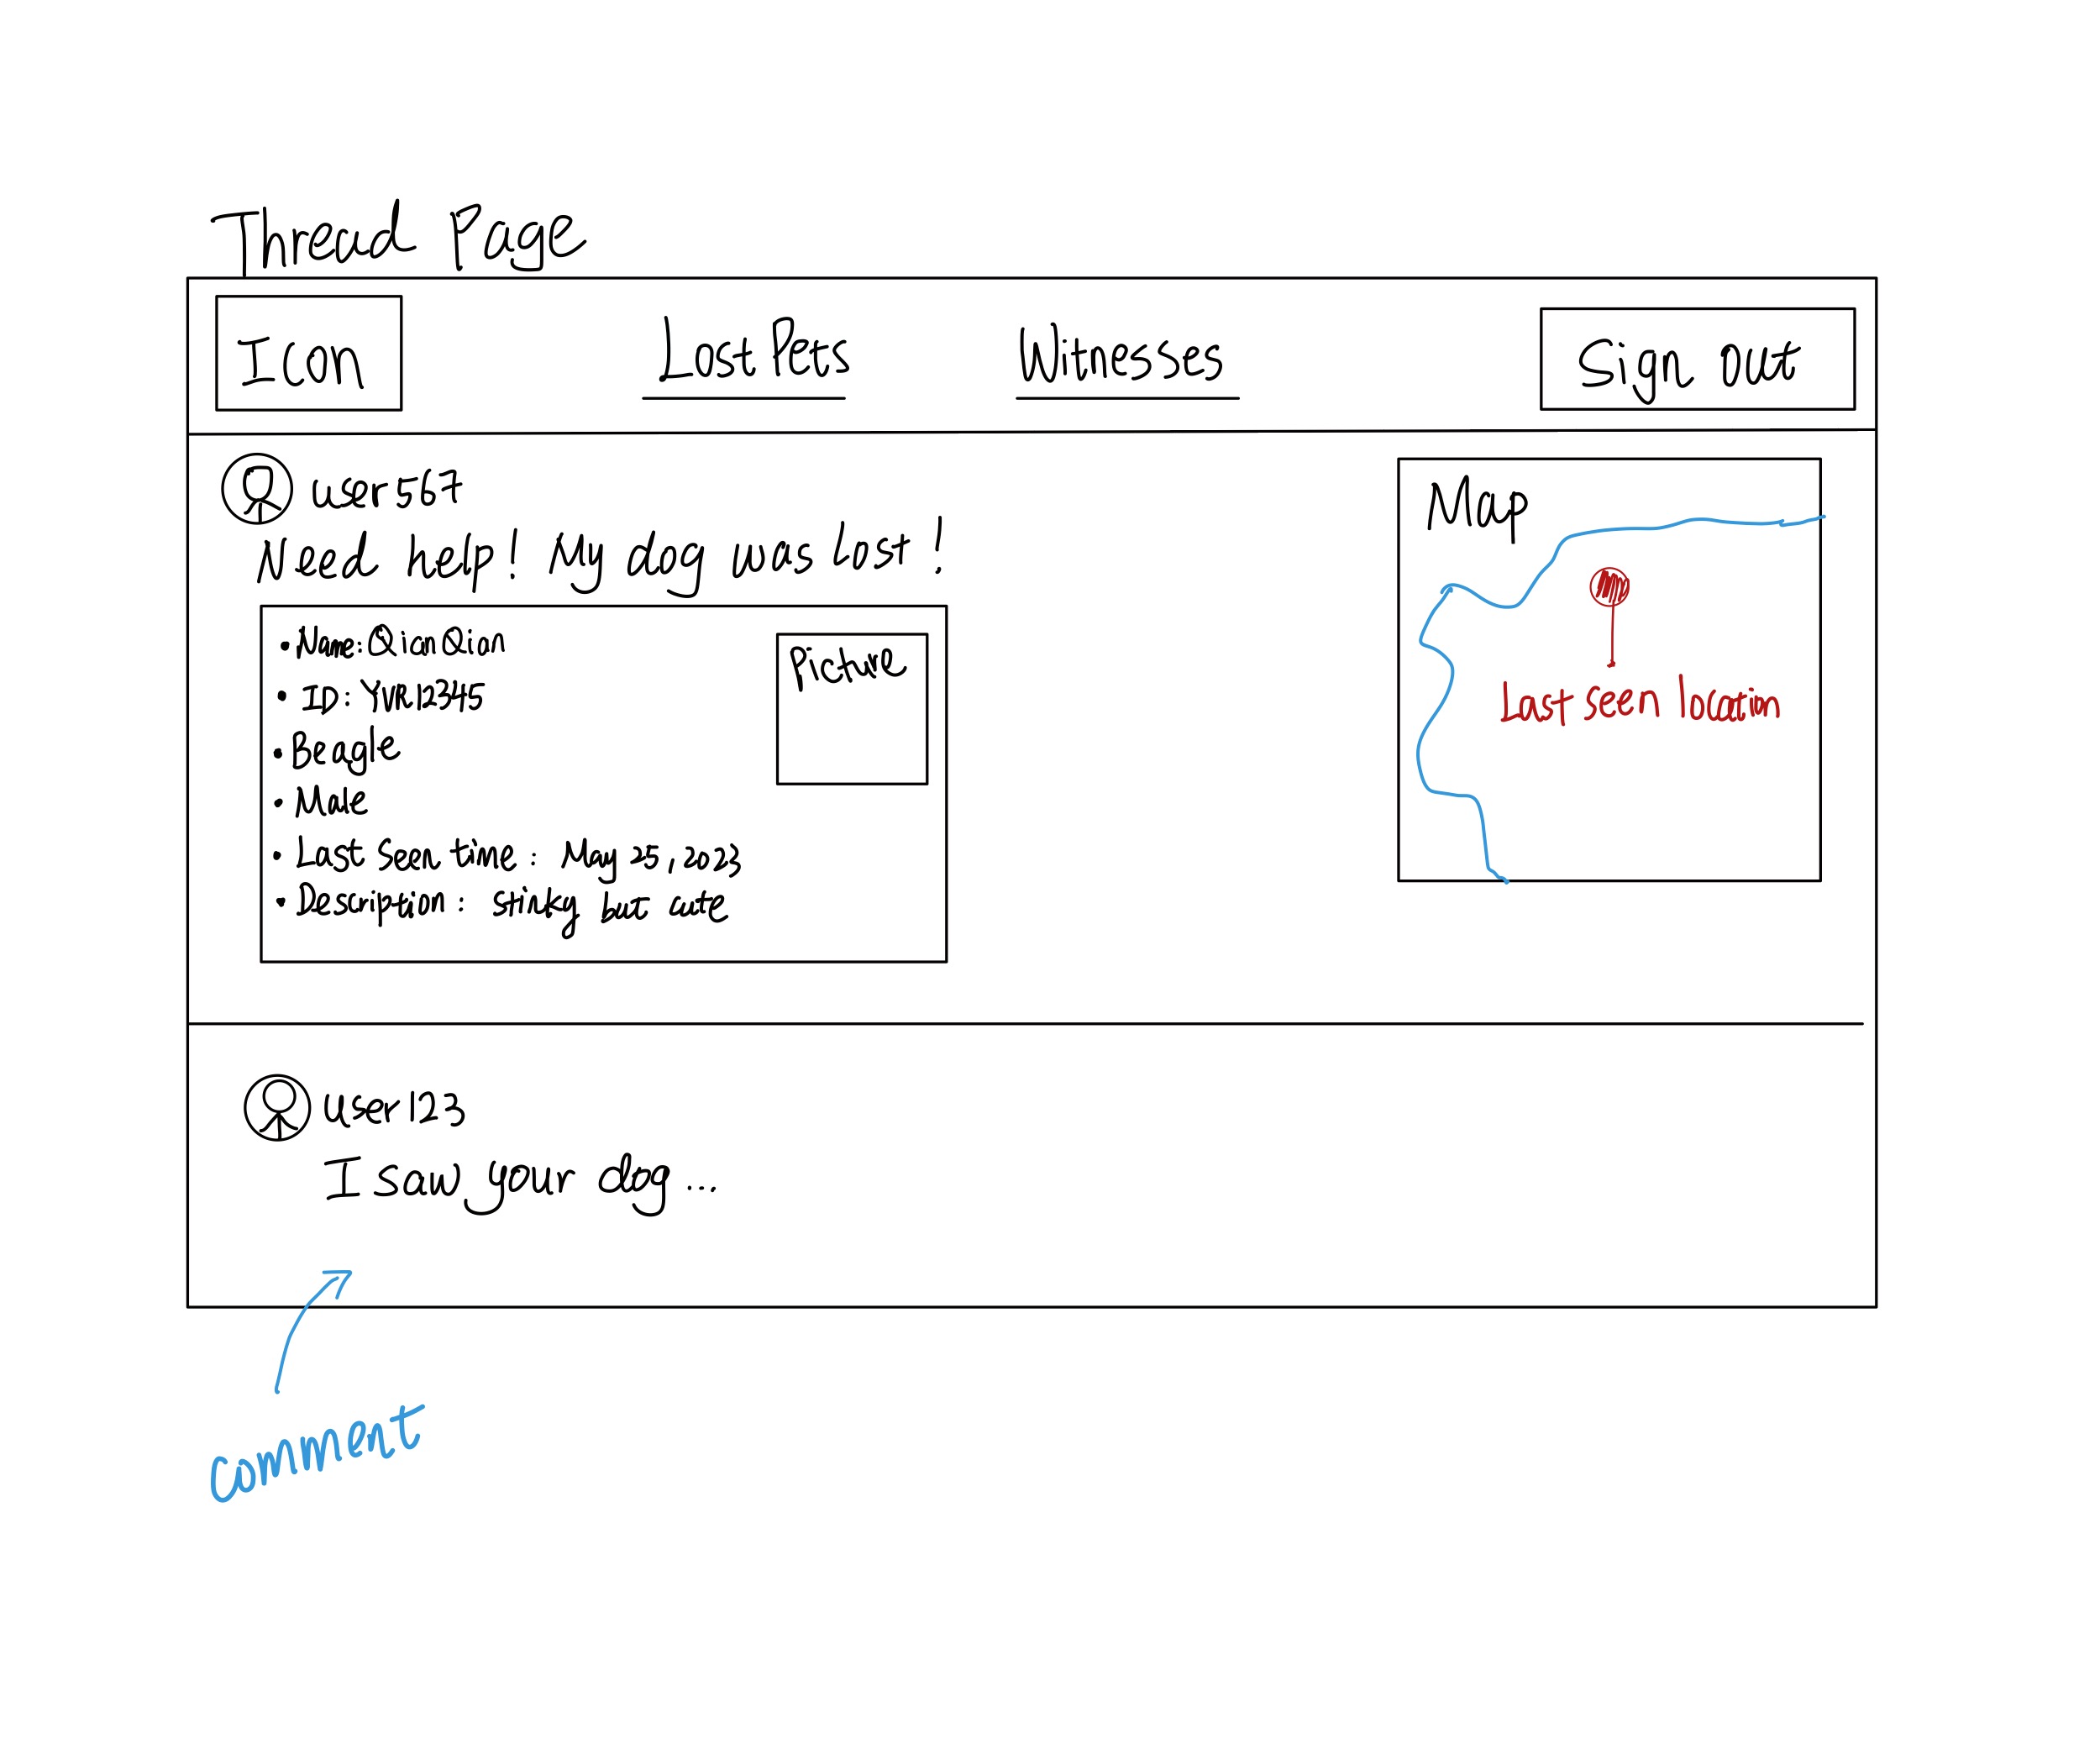 Thread Page
Icon
Lost Pets
Witnesses
Sign out
user567
Need help! My dog was lost!
• Name: QianQian
• ID: YVR12345
• Beagle
• Male
• Last Seen time: May 25, 2023
• Description: stinky but cute
Picture
Map
Last seen location
user123
I saw your dog...
comment